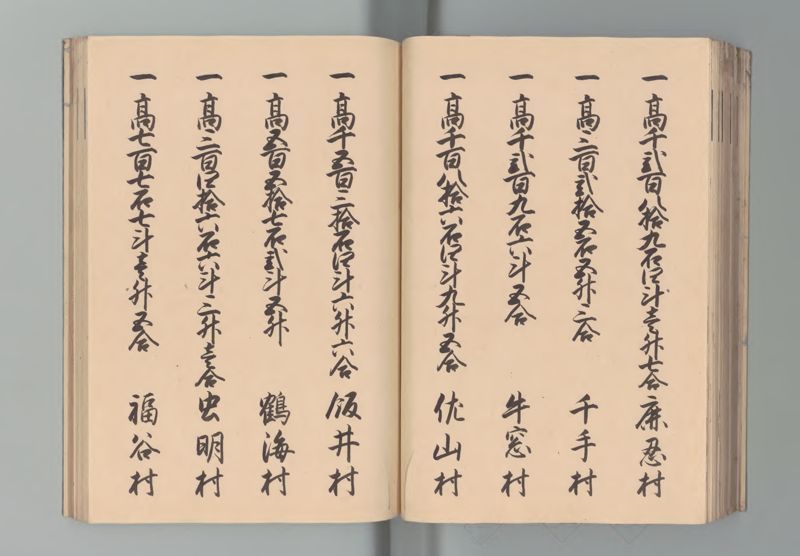 一高千弐百八拾九石四斗壱升七合 鹿忍村
一高三百弐拾五石五升三合 千手村
一高千弐百九石六斗五合 牛窓村
一高千百八拾六石四斗九升五合 佐山村
一高千五百三拾石四斗六升六合 飯井村
一高五百五拾七石弐斗五升 鶴海村
一高三百四拾六石六斗三升壱合 虫明村
一高七百七石七斗壱升五合 福谷村